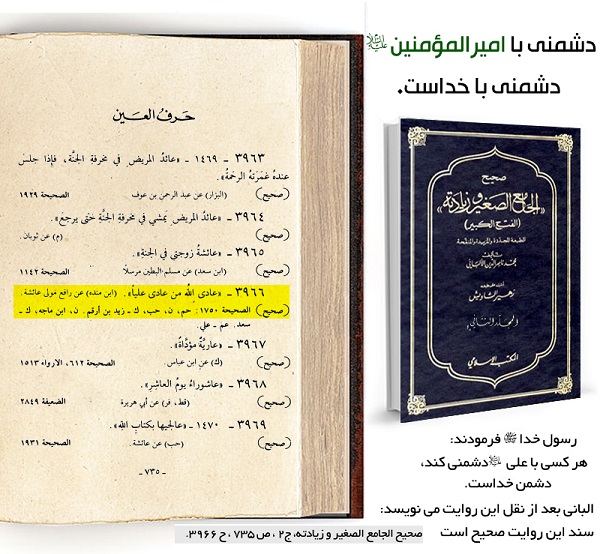 دشمنی با امیرالمؤمنین علیه‌السلام
دشمنی با خداست.
حَرف العَـين
٣٩٦٣ - ١٤٦٩ - «عائدُ المريضِ في مخرفةِ الجنَّةِ، فإِذا جلسَ
عندهُ غَمَرَتهُ الرحمةُ».
(صحيح) (البزار) عن عبد الرحمن بن عوف الصحيحة ١٩٢٩
٣٩٦٤ - «عائدُ المريضِ يَمشي في مخرفةِ الجنَّةِ حتَّى يرجعَ».
(صحيح) (م) عن ثوبان.
٣٩٦٥ - «عائشةُ زوجتي في الجنةِ».
(صحيح) (ابن سعد) عن مسلم البطين مرسلًا الصحيحة ١١٤٢
٣٩٦٦ - «عادى اللهُ من عادى علياً». (ابن منده) عن رافع مولى عائشة.
(صحيح) الصحيحة ١٧٥٠: حم، ن، حب، ك - زيد بن أرقم. ن، ابن ماجه، ك -
سعد. عم - علي.
٣٩٦٧ - «عاريَّةٌ مؤدَّاةٌ».
(صحيح) (ك) عن ابن عباس. الصحيحة ٦١٢، الأرواء ١٥١٣
٣٩٦٨ - «عاشوراءُ يومُ العاشرِ».
(صحيح) (قط، فر) عن أبي هريرة الضعيفة ٣٨٤٩
٣٩٦٩ - ١٤٧٠ - «عالجيها بكتابِ اللهِ».
(صحيح) (حب) عن عائشة. الصحيحة ١٩٣١
- ٧٣٥ -
صحيح
الجامع الصغير وزيادته»
(الفتح الكبير)
تأليف
محمد ناصر الدين الألباني
زهير الشاويش
المجلد الثاني
المكتب الإسلامي
رسول خدا ﷺ فرمودند:
هر کسی با علی علیه‌السلام دشمنی کند،
دشمن خداست.
البانی بعد از نقل این روایت می نویسد:
سند این روایت صحیح است
صحیح الجامع الصغیر و زیادته، ج۲ ، ص ۷۳۵ ، ح ۳۹۶۶.